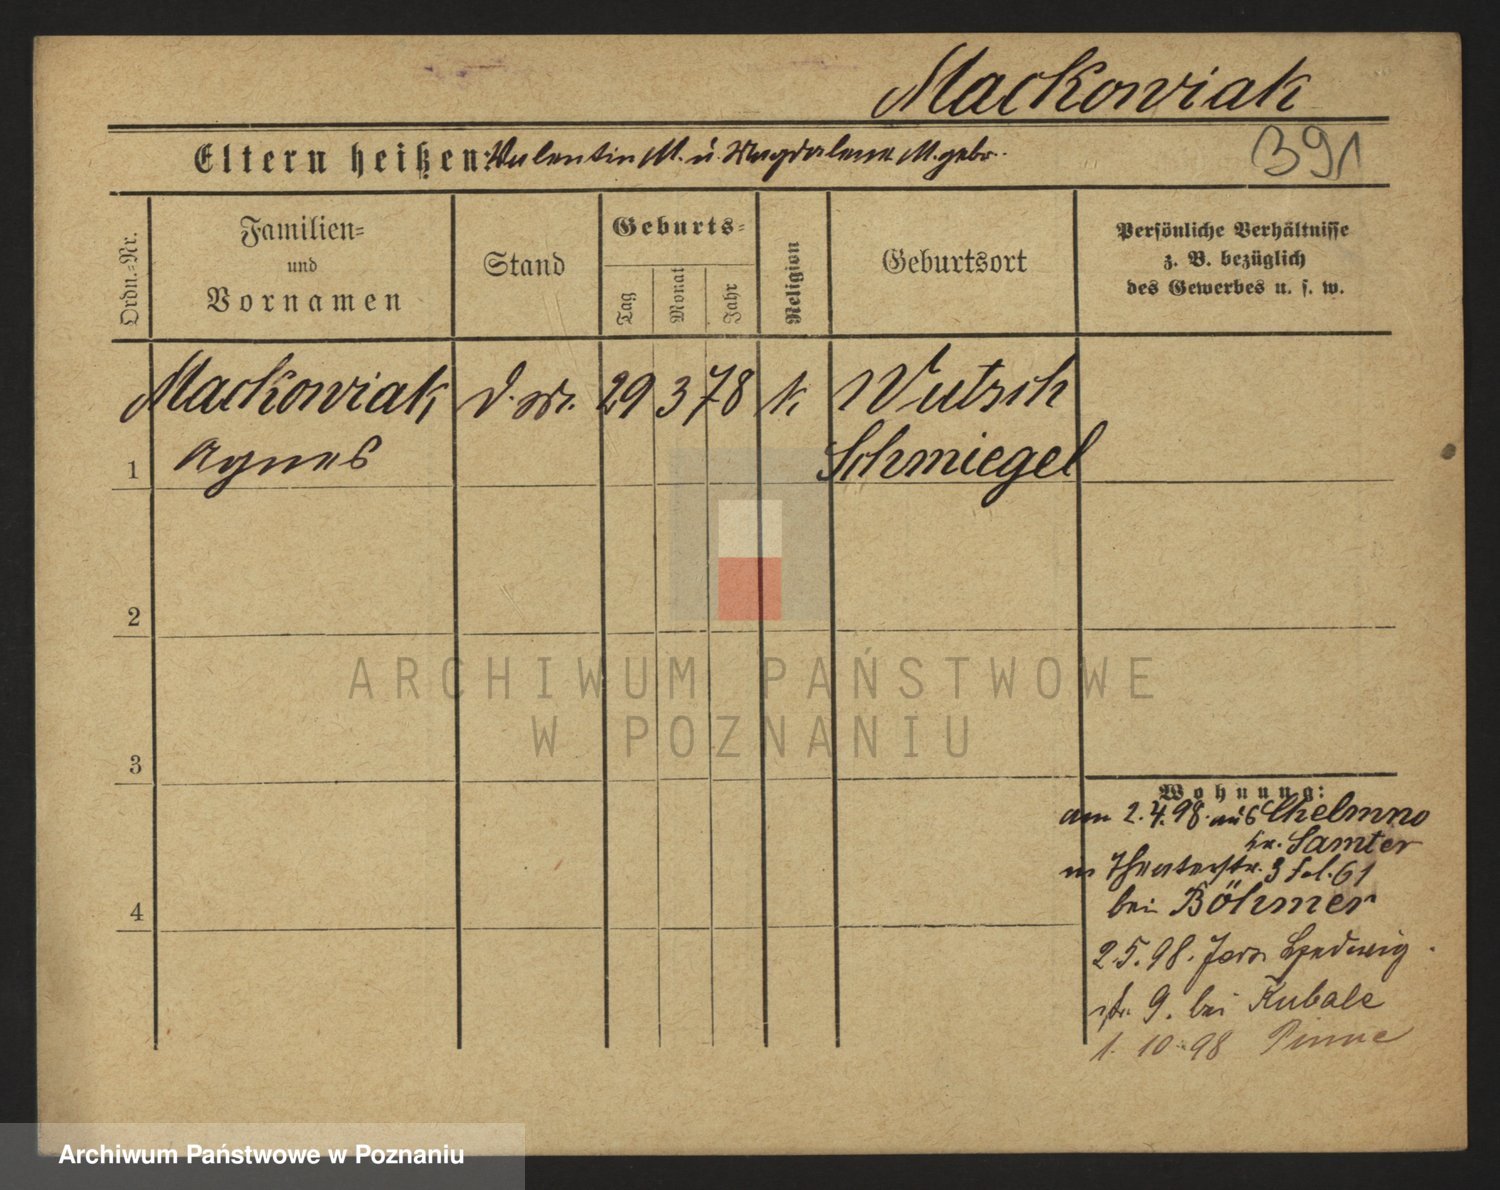 Mackowiak
391
Eltern heißen: Valentin M. u. Magdalene M. gebr.
Ordn.=Nr.
Familien=
und
Vornamen
Stand
Geburts=
Tag
Monat
Jahr
Religion
Geburtsort
Persönliche Verhältnisse
z. B. bezüglich
des Gewerbes u. s. w.
Mackowiak, 29 3 78 k. Wutsch
1 Agnes Schmiegel
2
3
Wohnung:
am 2.4.98. aus Chelmno
Kr. Samter
Theaterstr. 3
4 bei Böhmer
2.5.98. Hedwig
str. 9. bei Kubale
1. 10. 98 Pinne
ARCHIWUM PAŃSTWOWE
W POZNANIU
Archiwum Państwowe w Poznaniu